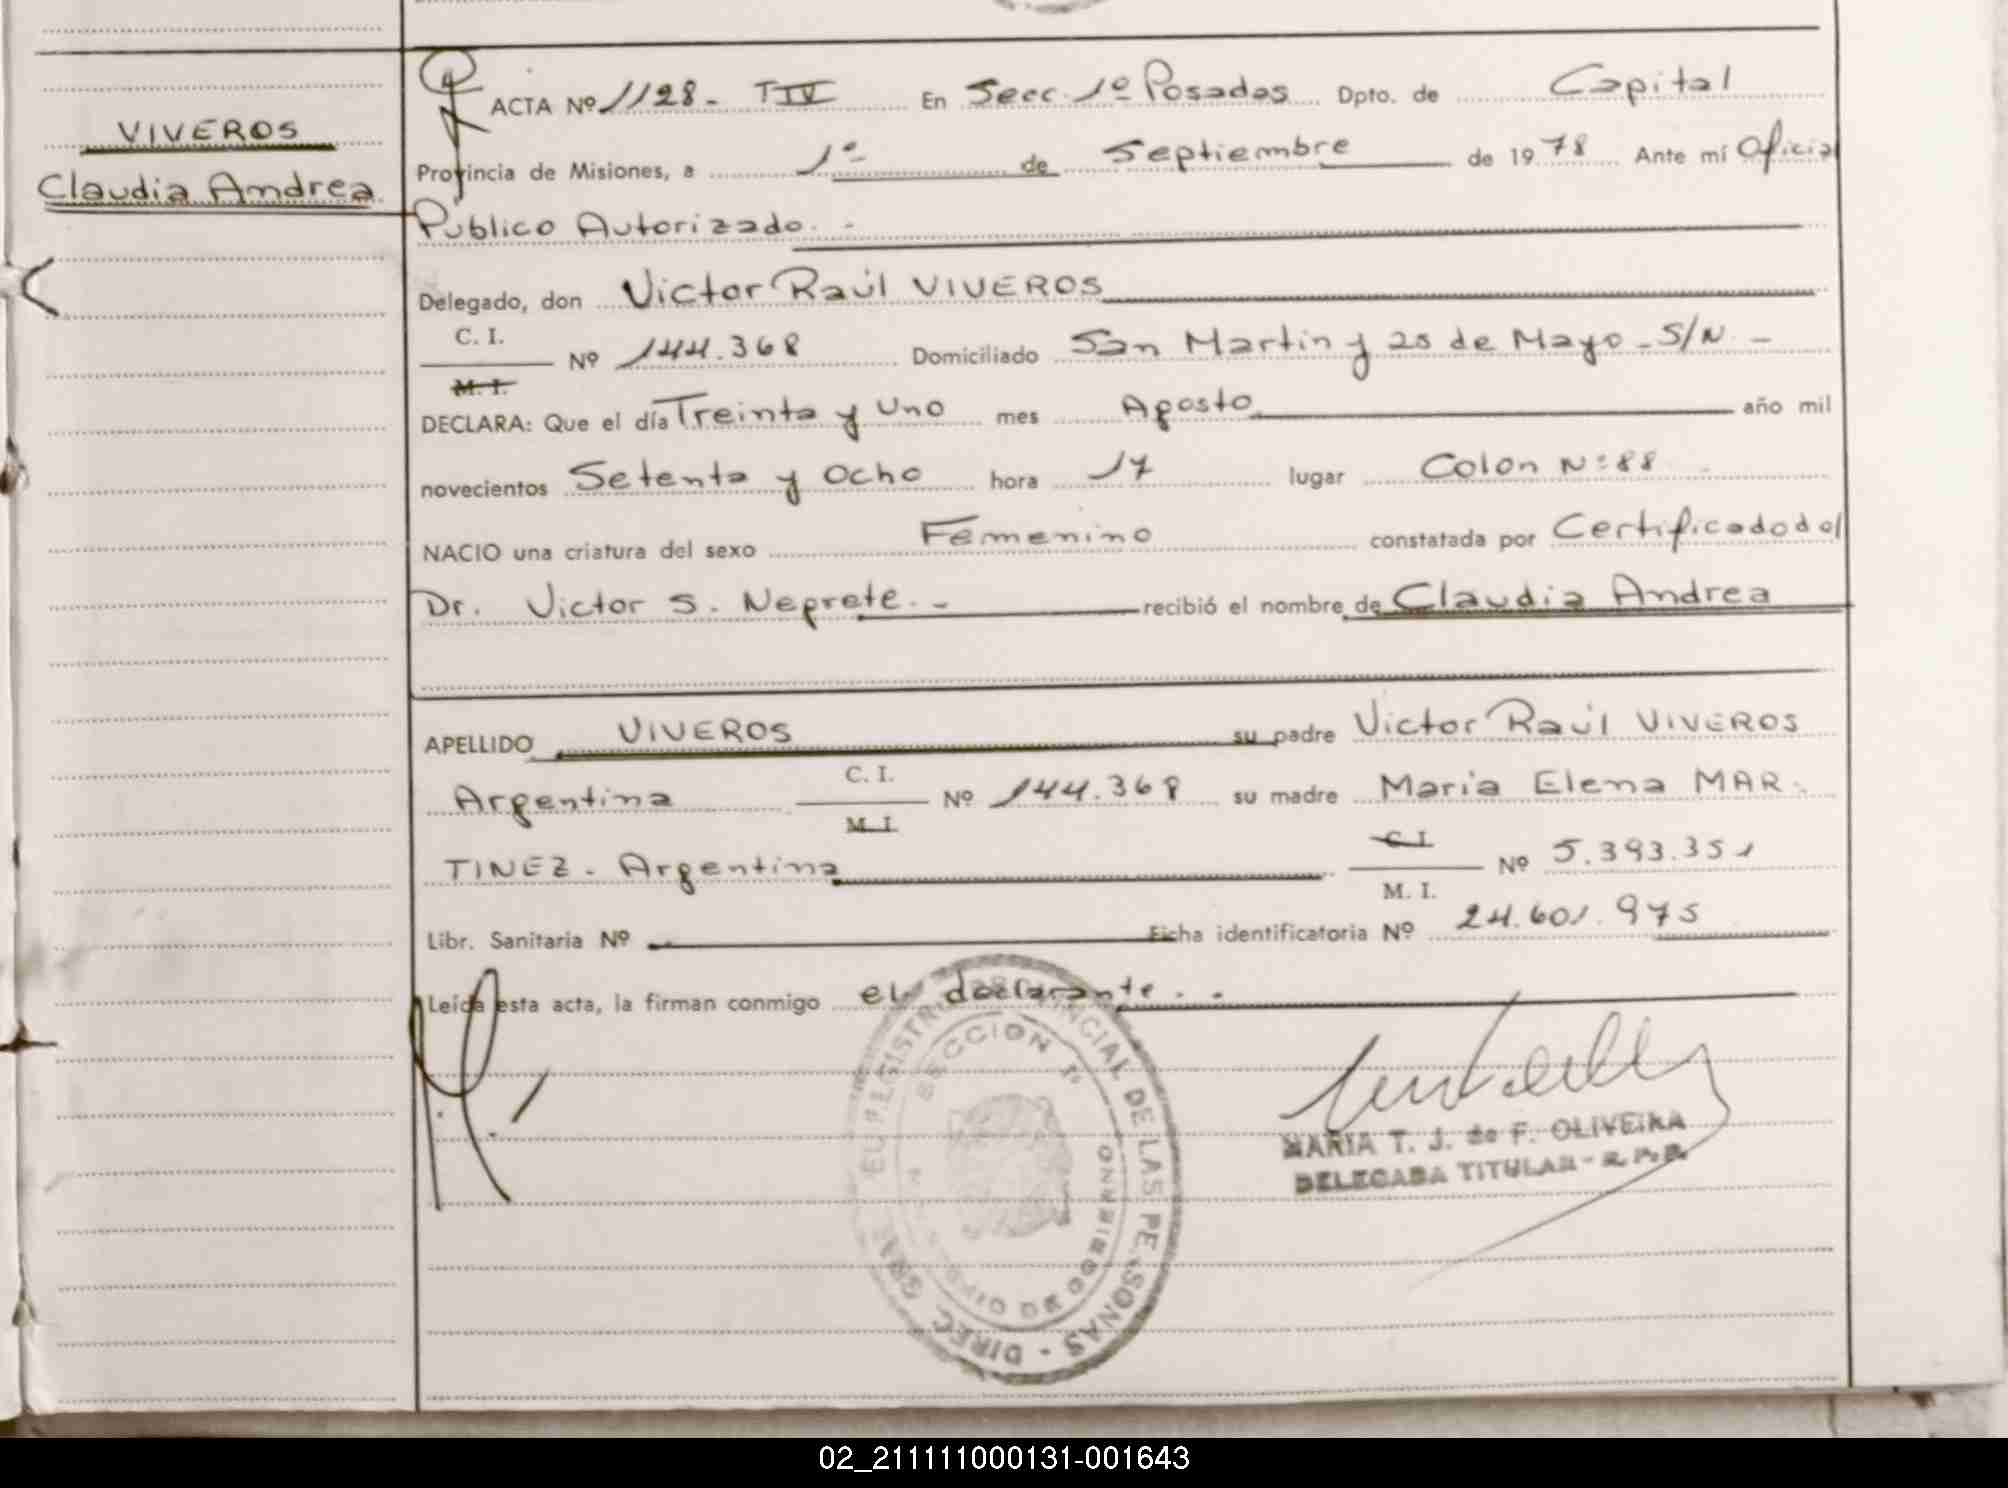 VIVEROS
Claudia Andrea
ACTA Nº 1128- T IV En Secc. 1º Posadas Dpto. de Capital
Provincia de Misiones, a 1º de Septiembre de 1978 Ante mí Oficial
Público Autorizado. -
Delegado, don Victor Raúl VIVEROS
C. I.
Nº 144.368 Domiciliado San Martin y 25 de Mayo - S/N. -
M. I.
DECLARA: Que el día Treinta y Uno mes Agosto año mil
novecientos Setenta y Ocho hora 17 lugar Colon Nº 88
NACIO una criatura del sexo Femenino constatada por Certificado del
Dr. Victor S. Neprete. - recibió el nombre de Claudia Andrea
APELLIDO VIVEROS su padre Victor Raúl VIVEROS
C. I.
Argentina Nº 144.368 su madre Maria Elena MAR-
M. I.
C. I.
TINEZ - Argentina Nº 5.393.351
M. I.
Libr. Sanitaria Nº Ficha identificatoria Nº 24.601.975
Leída esta acta, la firman conmigo el declarante. -
DIREC. GRAL DEL REGISTRO PROVINCIAL DE LAS PERSONAS -
SECCION 1º
MARIA T. J. de F. OLIVEIRA
DELEGADA TITULAR - R.P.P.
02_211111000131-001643